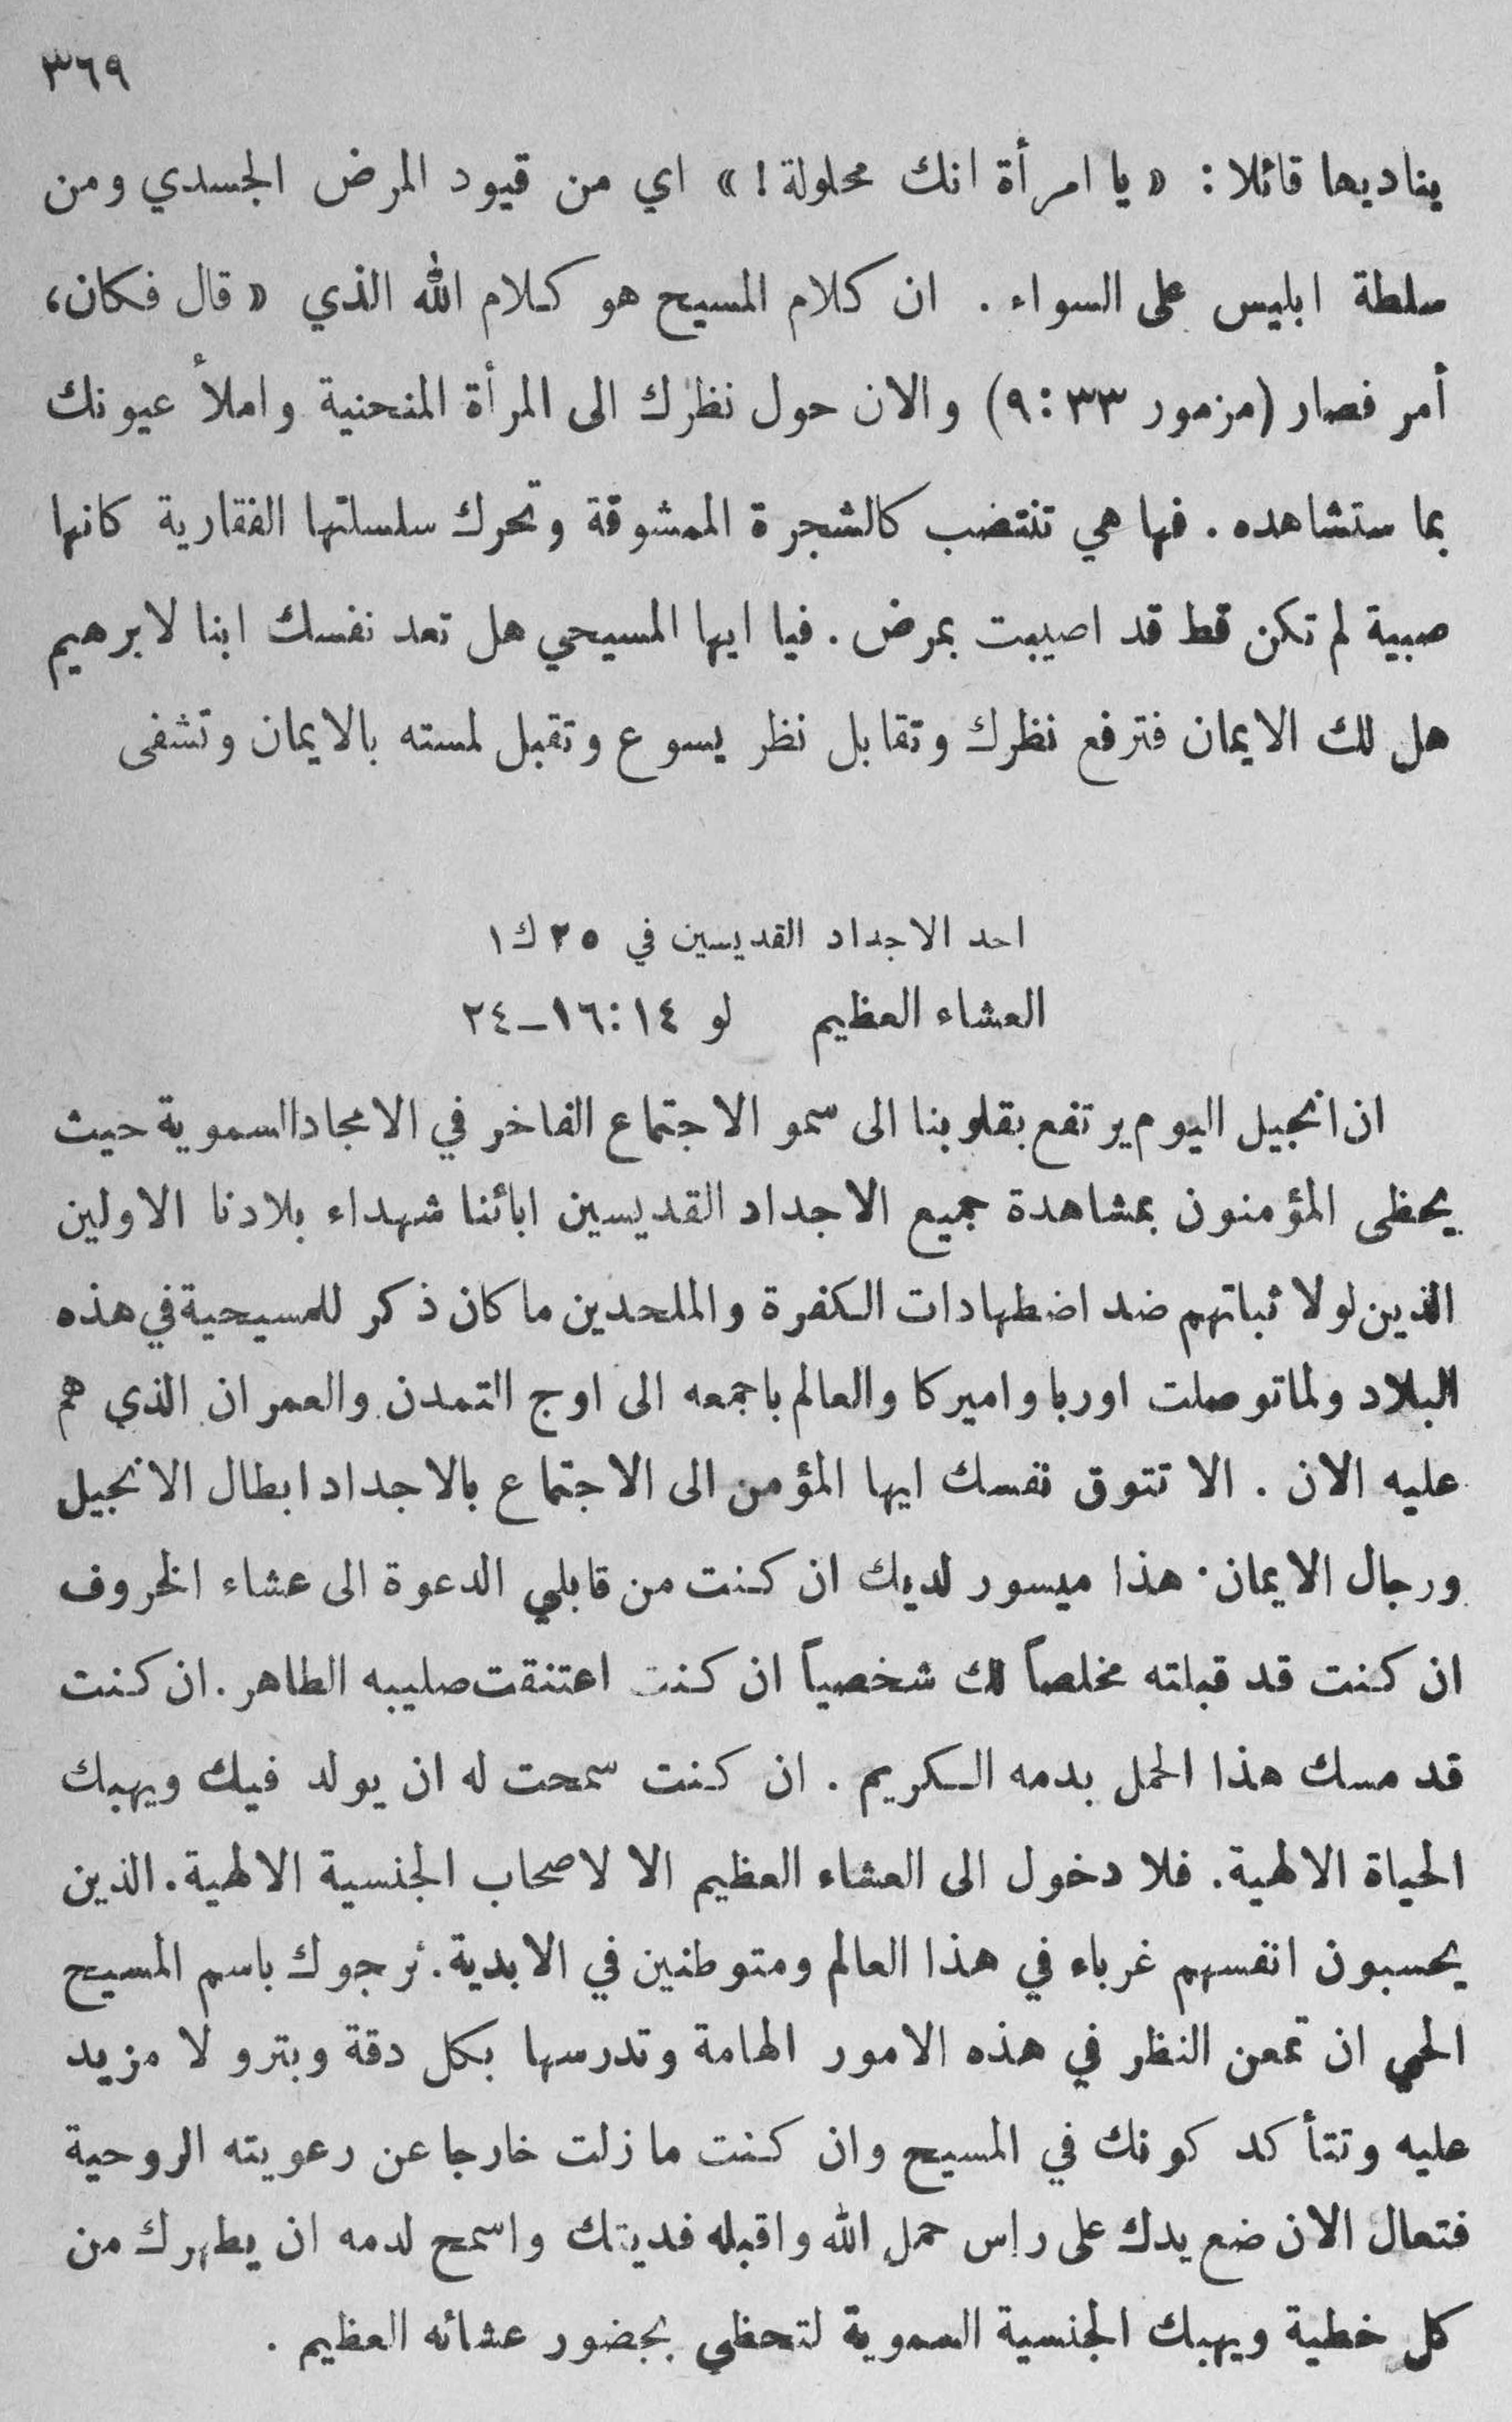 ٣٦٩
يناديها قائلا: « يا امرأة انك محلولة ! » اي من قيود المرض الجسدي ومن
سلطة ابليس على السواء . ان كلام المسيح هو كلام الله الذي « قال فكان،
أمر فصار (مزمور ٣٣ :٩) والان حول نظرك الى المرأة المنحنية واملأ عيونك
بما ستشاهده . فها هي تنتضب كالشجرة الممشوقة وتحرك سلسلتها الفقارية كانها
صبية لم تكن قط قد اصيبت بمرض . فيا ايها المسيحي هل تعد نفسك ابنا لابرهيم
هل لك الايمان فترفع نظرك وتقابل نظر يسوع وتقبل لمسته بالايمان وتشفى
احد الاجداد القديسين في ٢٥ ك١
العشاء العظيم لو ١٤ :١٦-٢٤
ان انجيل اليوم يرتفع بقلوبنا الى سمو الاجتماع الفاخر في الامجاد السموية حيث
يحظى المؤمنون بمشاهدة جميع الاجداد القديسين ابائنا شهداء بلادنا الاولين
الذين لولا ثباتهم ضد اضطهادات الكفرة والملحدين ما كان ذكر للمسيحية في هذه
البلاد ولما توصلت اوربا واميركا والعالم باجمعه الى اوج التمدن والعمران الذي هم
عليه الان . الا تتوق نفسك ايها المؤمن الى الاجتماع بالاجداد ابطال الانجيل
ورجال الايمان. هذا ميسور لديك ان كنت من قابلي الدعوة الى عشاء الخروف
ان كنت قد قبلته مخلصاً لك شخصياً ان كنت اعتنقت صليبه الطاهر. ان كنت
قد مسك هذا الحمل بدمه الكريم . ان كنت سمحت له ان يولد فيك ويهبك
الحياة الالهية. فلا دخول الى العشاء العظيم الا لاصحاب الجنسية الالهية. الذين
يحسبون انفسهم غرباء في هذا العالم ومتوطنين في الابدية. نرجوك باسم المسيح
الحي ان تمعن النظر في هذه الامور الهامة وتدرسها بكل دقة وبترو لا مزيد
عليه وتتأكد كونك في المسيح وان كنت ما زلت خارجا عن رعويته الروحية
فتعال الان ضع يدك على راس حمل الله واقبله فديتك واسمح لدمه ان يطهرك من
كل خطية ويهبك الجنسية السموية لتحظي بحضور عشائه العظيم .